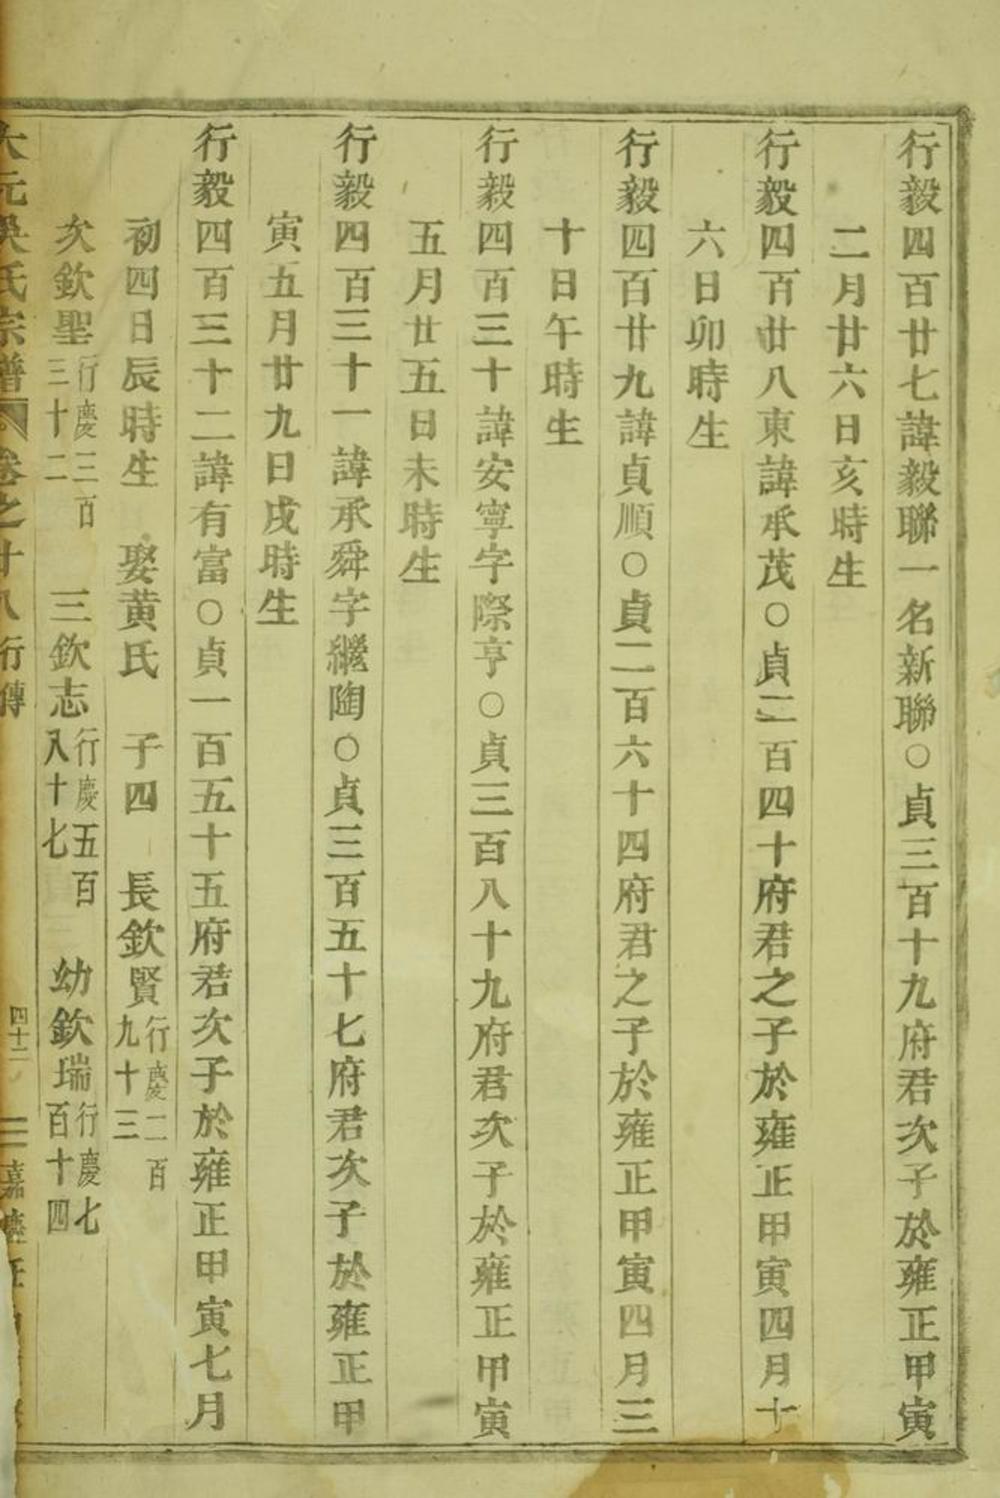 行毅四百廿七諱毅聯一名新聯○貞三百十九府君次子於雍正甲寅
二月廿六日亥時生
行毅四百廿八東諱承茂○貞二百四十府君之子於雍正甲寅四月十
六日卯時生
行毅四百廿九諱貞順○貞二百六十四府君之子於雍正甲寅四月三
十日午時生
行毅四百三十諱安寧字際亨○貞三百八十九府君次子於雍正甲寅
五月廿五日未時生
行毅四百三十一諱承舜字繼陶○貞三百五十七府君次子於雍正甲
寅五月廿九日戌時生
行毅四百三十二諱有富○貞一百五十五府君次子於雍正甲寅七月
初四日辰時生 娶黄氏 子四 長欽賢行慶二百九十三
次欽聖行慶三百三十二 三欽志行慶五百八十七 幼欽瑞行慶七百十四
大元吳氏宗譜 卷之廿八 行傳 四十二